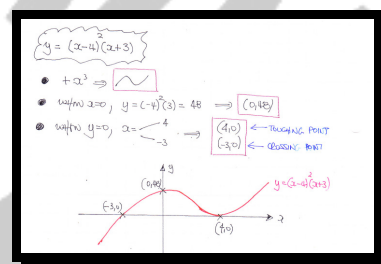 y = (x-4)²(x+3)
+x³ ⇒
when x=0, y=(-4)²(3) = 48 ⟹ (0,48)
when y=0, x= 4
-3
⟹ (4,0) ← TOUCHING POINT
(-3,0) ← CROSSING POINT
y
(0,48)
y=(x-4)²(x+3)
(-3,0)
x
(4,0)